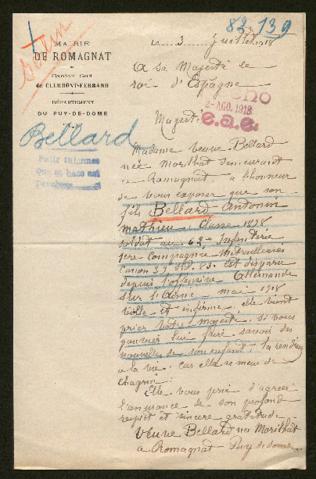 83-139
MAIRIE
DE ROMAGNAT
Canton Sud
de CLERMONT-FERRAND
DÉPARTEMENT
DU PUY-DE-DOME
Bellard
Le 3 Juillet 1918
A sa Majesté le
roi d'Espagne
2-AGO.1918
Majesté
Madame veuve Bellard
née Morilhat demeurant
à Romagnat a l'honneur
de vous exposer que son
fils Bellard Antonin
Mathieu classe 1898
soldat au 62e Infanterie
1ère compagnie Mitrailleuses
est disparu
depuis l'offensive Allemande
sur l'Aisne mai 1918
Vielle et infirme elle vient
prier votre majesté si vous
pouvier lui faire savoir des
nouvelles de son enfant la rendrez
à la vie. car elle se meus de
chagrin.
Elle vous prie d'agréer
l'assurance de son profond
respect et sincère gratitude
Veuve Bellard née Morilhat
à Romagnat Puy de dome